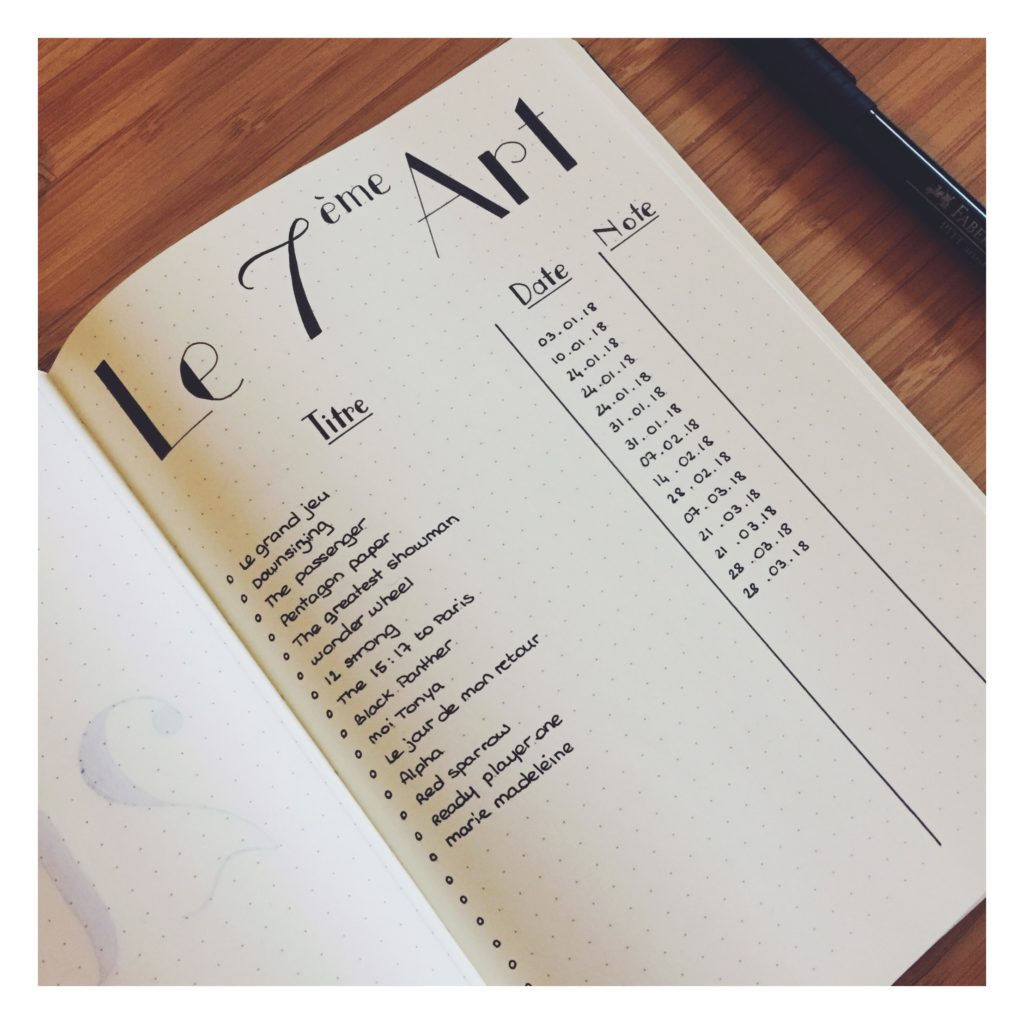 Le 7ème Art
Titre Date Note
Le grand jeu 03.01.18
Downsizing 10.01.18
The passenger 24.01.18
Pentagon paper 24.01.18
The greatest showman 24.01.18
wonder wheel 31.01.18
12 strong 31.01.18
The 15:17 to Paris 07.02.18
Black Panther 14.02.18
Moi Tonya 28.02.18
Le jour de mon retour 07.03.18
Alpha 21.03.18
Red sparrow 21.03.18
Ready player one 28.03.18
marie madeleine 28.03.18
FABER
PITT